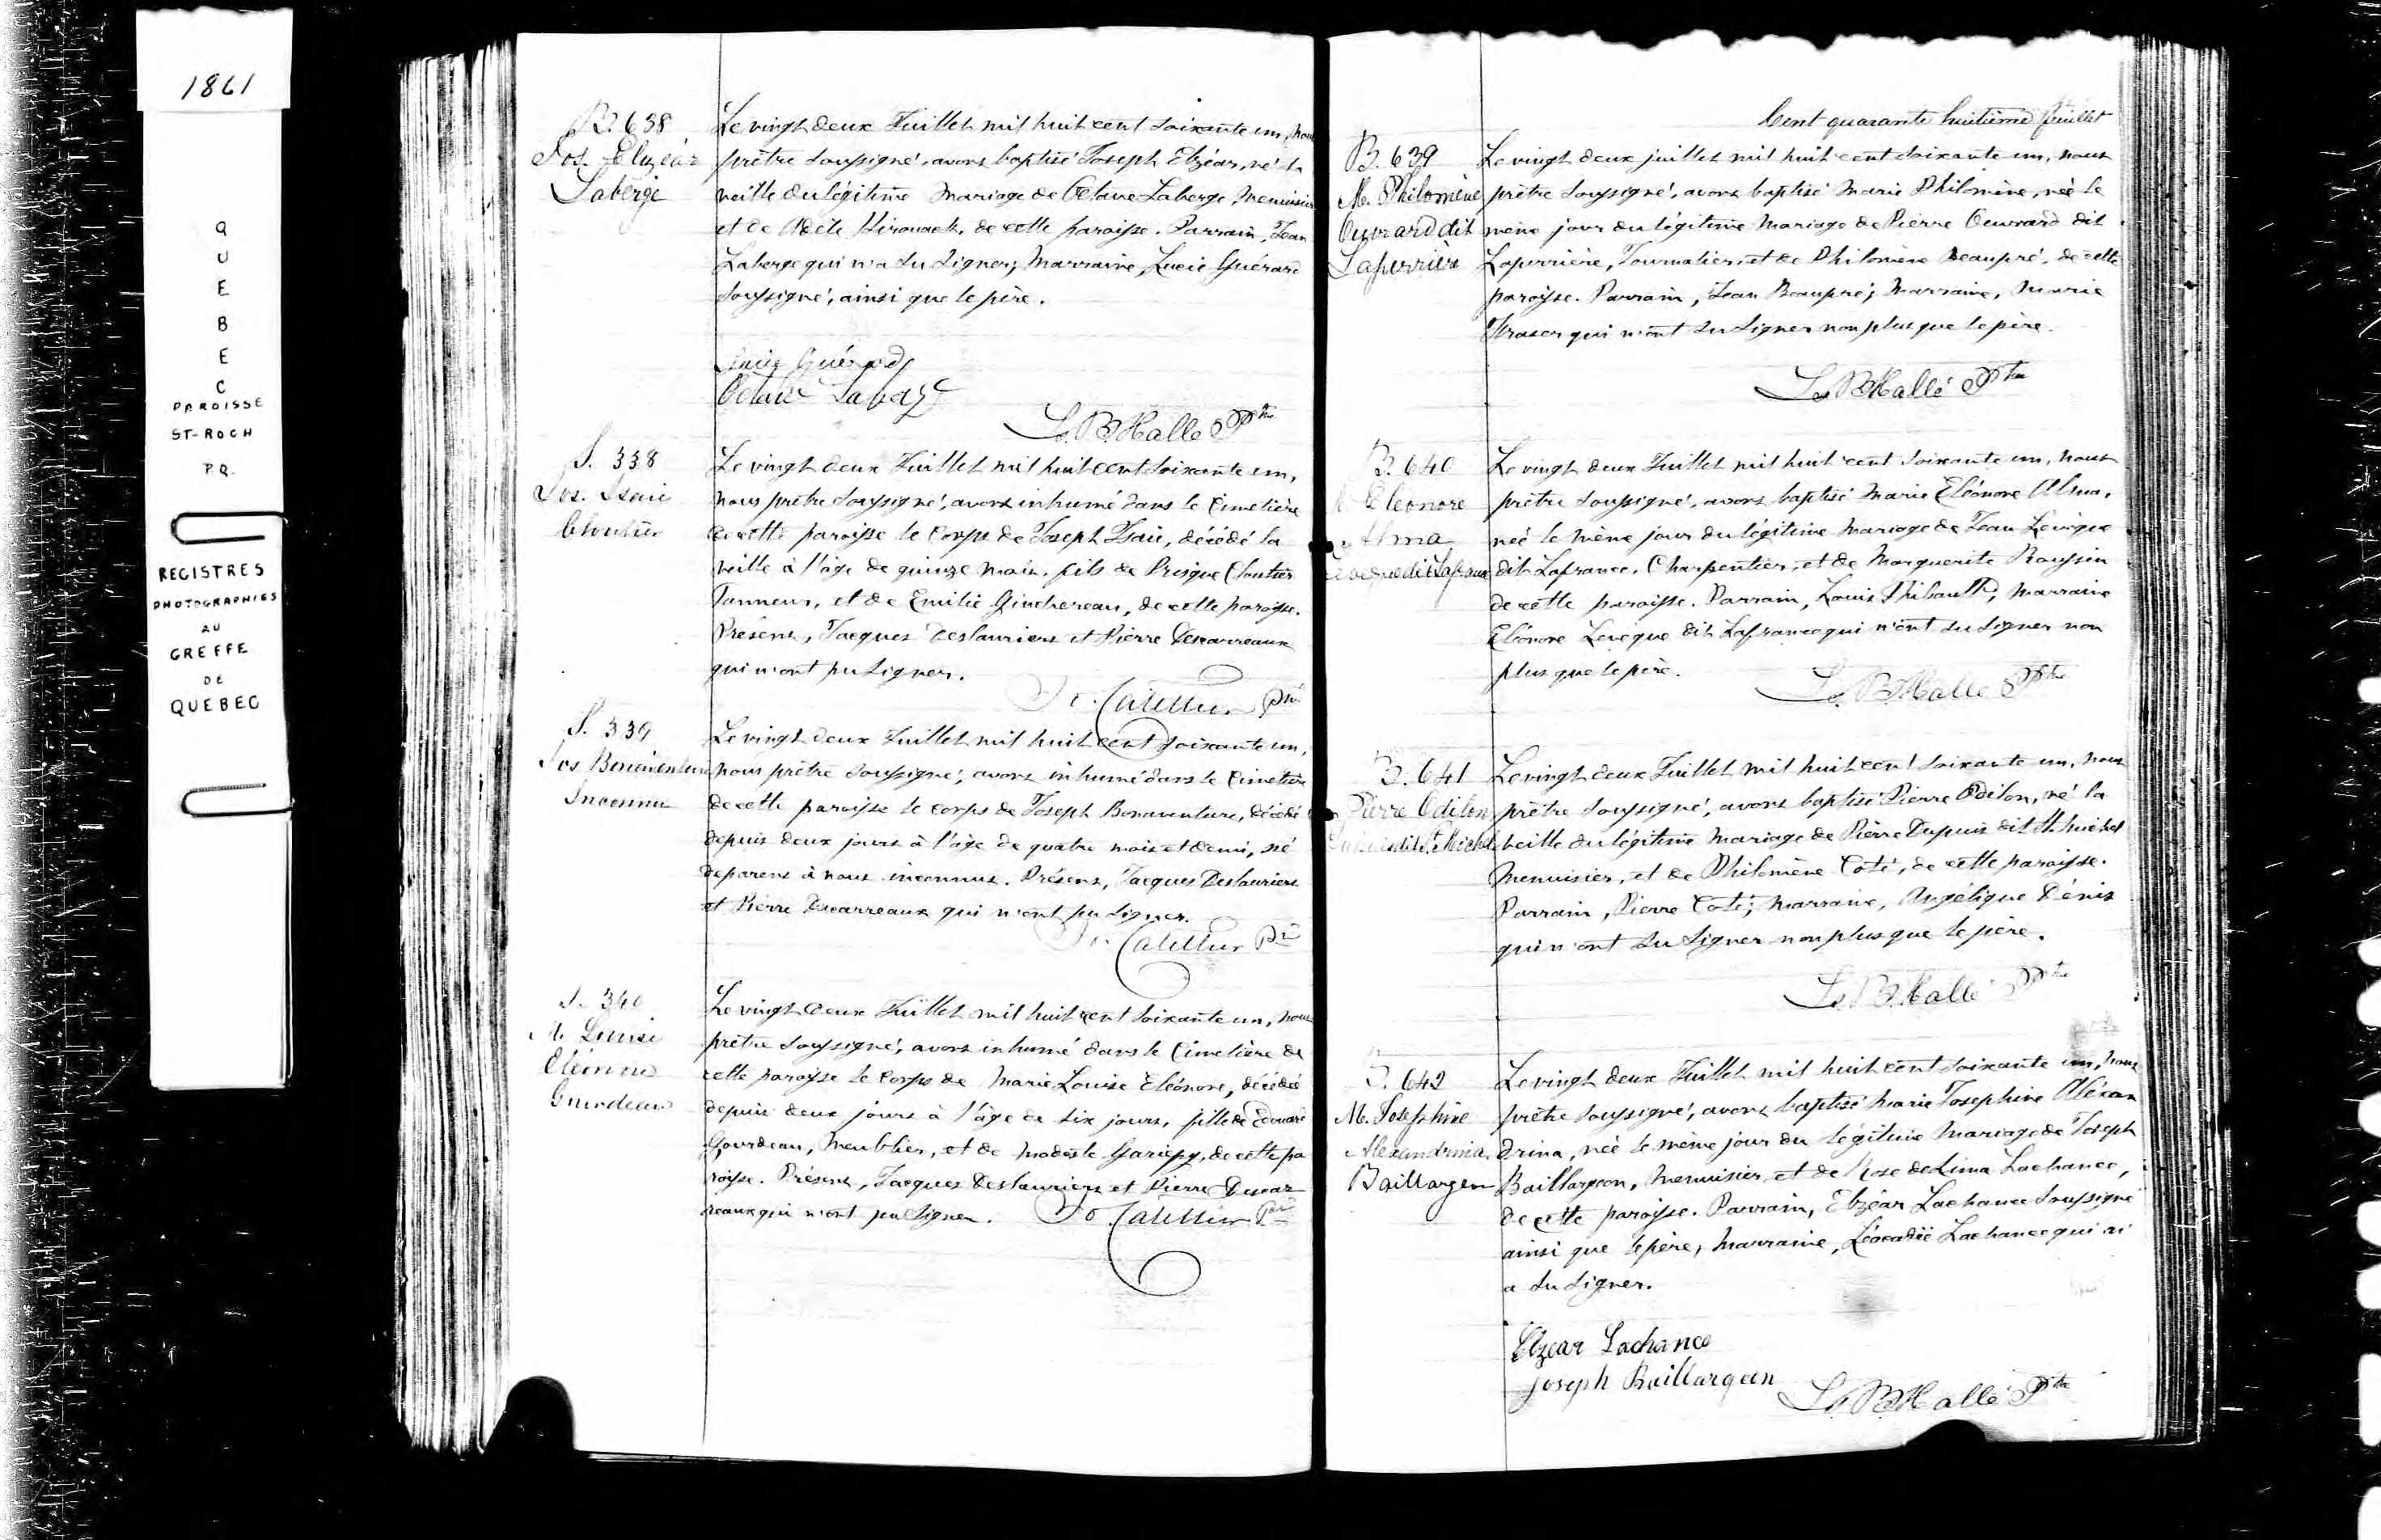 1861
QUEBEC
PAROISSE
ST-ROCH
P.Q.
REGISTRES
PHOTOGRAPHIES
AU
GREFFE
DE
QUEBEC
B. 638
Jos. Elzéar
Laberge
Le vingt deux Juillet mil huit cent soixante un, nous
prêtre soussigné, avons baptisé Joseph Elzéar, né la
veille du légitime mariage de Octave Laberge, menuisier
et de Adèle Kirouack, de cette paroisse. Parrain, Jean
Laberge qui n'a su signer; Marraine, Lucie Guérard
soussigné, ainsi que le père.
Lucie Guérard
Octave Laberge
Ls. B. Hallé Ptre
S. 338
Jos. Isaïe
Cloutier
Le vingt deux Juillet mil huit cent soixante un,
nous prêtre soussigné, avons inhumé dans le Cimetière
de cette paroisse le corps de Joseph Isaïe, décédé la
veille à l'âge de quinze mois, fils de Prisque Cloutier
Tanneur, et de Emilie Guichereau, de cette paroisse.
Présens, Jacques Deslauriers et Pierre Descarreaux
qui n'ont pu signer.
Ptre
S. 339
Jos Bonaventure
Inconnu
Le vingt deux Juillet mil huit cent soixante un,
nous prêtre soussigné, avons inhumé dans le Cimetière
de cette paroisse le corps de Joseph Bonaventure, décédé
depuis deux jours à l'âge de quatre mois et demi, né
de parens à nous inconnus. Présens, Jacques Deslauriers
et Pierre Descarreaux qui n'ont pu signer.
Ptre
S. 340
M. Louise
Eléonore
Gourdeau
Le vingt deux Juillet mil huit cent soixante un, nous
prêtre soussigné, avons inhumé dans le Cimetière de
cette paroisse le corps de Marie Louise Eléonore, décédée
depuis deux jours à l'âge de six jours, fille de Edouard
Gourdeau, Meublier, et de Modeste Gariepy, de cette pa
roisse. Présens, Jacques Deslauriers et Pierre Descar
reaux qui n'ont pu signer.
Ptre
Cent quarante huitième feuillet
B. 639
M. Philomène
Ouvrard dit
Laperrière
Le vingt deux juillet mil huit cent soixante un, nous
prêtre soussigné, avons baptisé Marie Philomène, née le
même jour du légitime mariage de Pierre Ouvrard dit
Laperrière, Journalier, et de Philomène Beaupré, de cette
paroisse. Parrain, Jean Beaupré; Marraine, Marie
Fraser qui n'ont su signer non plus que le père.
Ls. B. Hallé Ptre
B. 640
M. Eléonore
Alma
Levêque dit Lafrance
Le vingt deux Juillet mil huit cent soixante un, nous
prêtre soussigné, avons baptisé Marie Eléonore Alma,
née le même jour du légitime mariage de Jean Levêque
dit Lafrance, Charpentier, et de Marguerite Roussin
de cette paroisse. Parrain, Louis Thibault; Marraine
Eléonore Levêque dit Lafrance qui n'ont su signer non
plus que le père.
Ls. B. Hallé Ptre
B. 641
Pierre Odilon
Dupuis dit St. Michel
Le vingt deux Juillet mil huit cent soixante un, nous
prêtre soussigné, avons baptisé Pierre Odilon, né la
veille du légitime mariage de Pierre Dupuis dit St. Michel
Menuisier, et de Philomène Coté, de cette paroisse.
Parrain, Pierre Coté; Marraine, Angélique Dénis
qui n'ont su signer non plus que le père.
Ls. B. Hallé Ptre
B. 642
M. Josephine
Alexandrina
Baillargeon
Le vingt deux Juillet mil huit cent soixante un, nous
prêtre soussigné, avons baptisé Marie Josephine Alexan
drina, née le même jour du légitime mariage de Joseph
Baillargeon, Menuisier, et de Rose de Lima Lachance,
de cette paroisse. Parrain, Elzéar Lachance soussigné
ainsi que le père, Marraine, Léocadie Lachance qui n'
a su signer.
Elzear Lachance
Joseph Baillargeon
Ls. B. Hallé Ptre